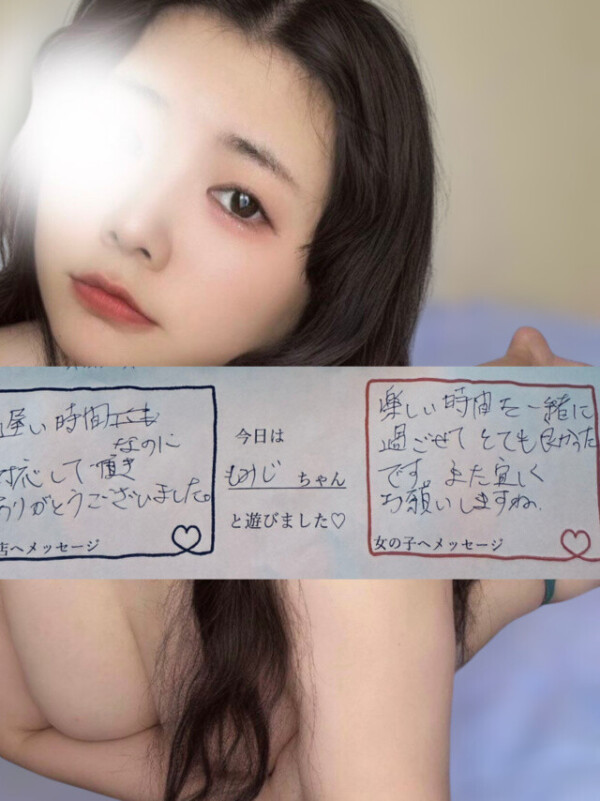 遅い時間
なのに
対応して頂き
ありがとうございました。
店へメッセージ
今日は
もみじ ちゃん
と遊びました♡
楽しい時間を一緒に
過ごせてとても良かった
です。また宜しく
お願いしますね。
女の子へメッセージ